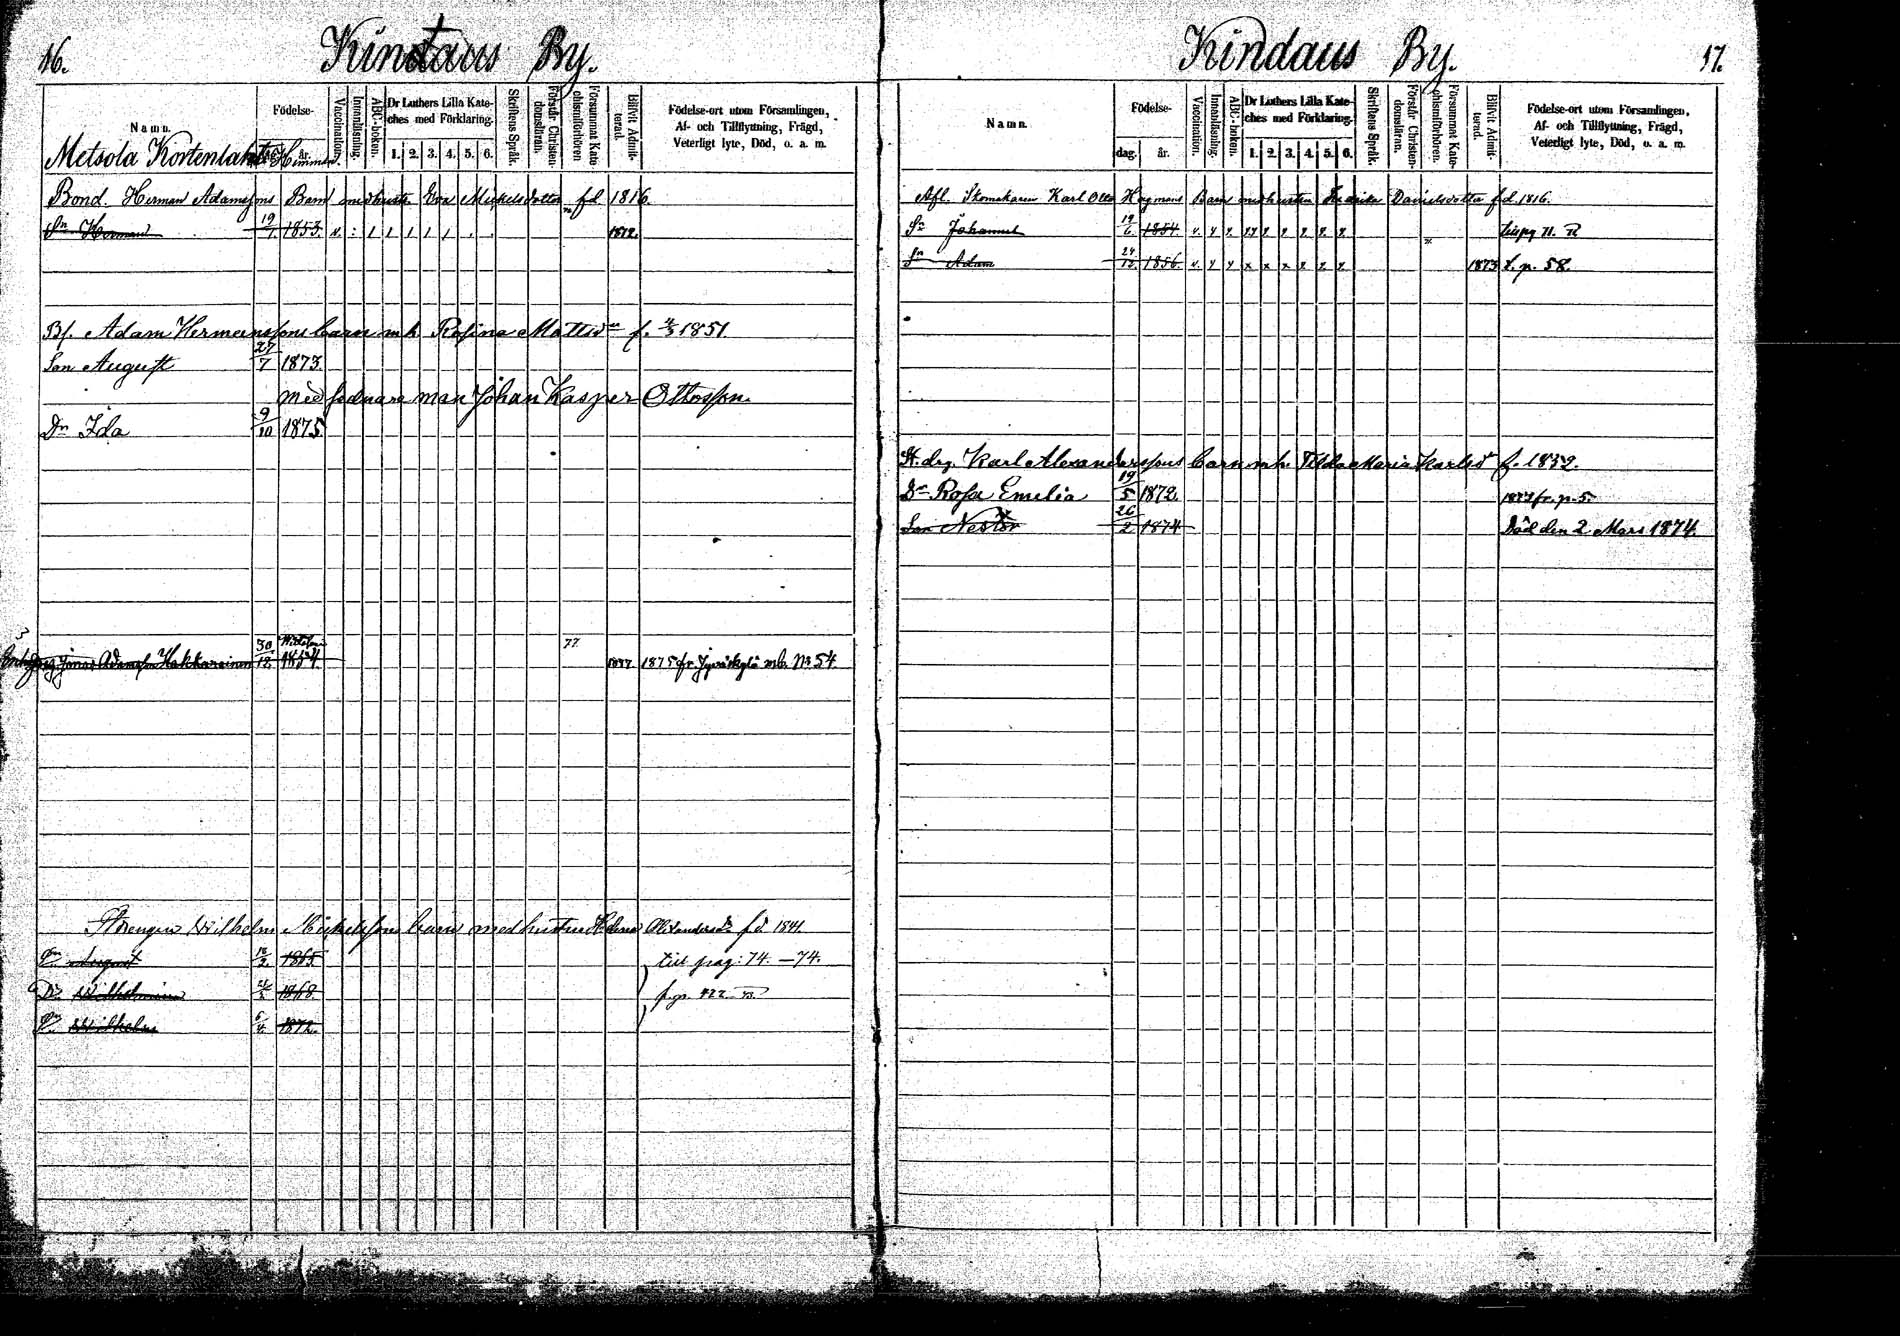 16.
Kintaus By.
Namn.
Födelse-
dag. år.
Vaccination.
Innanläsning.
ABC-boken.
Dr Luthers Lilla Kate-
ches med Förklaring.
1. 2. 3. 4. 5. 6.
Skriftens Språk.
Förstår Christen-
domsläran.
Försummat Kate-
chismiförhören
Blifvit Admit-
terad.
Födelse-ort utom Församlingen,
Af- och Tillflyttning, Frägd,
Veterligt lyte, Död, o. a. m.
Metsola Kortenlahti Hemman
Bond. Herman Adamssons Barn med hustr. Eva Mickelsdotter fd 1816.
Sn Herman 19/1 1853. v. 1872.
Bf. Adam Hermanssons barn m.h. Rosina Mattsdr f. 4/3 1851.
Son August 27/7 1873.
med sednare man Johan Kasper Ottosson.
Dr Ida 9/10 1875.
Jonas Adamsson Hakkarainen 30/12 1854. 77 1877. 1875 fr. Jyväskylä mb. No 54
Drengen Wilhelm Mickelssons barn med hustrun Helena Alexandersdr fd 1841.
Sn August 1865 till pag: 74. —74.
Dr Wilhelmina 1868.
Sn Wilhelm 6/4 1872.
Kindaus By.
17.
Namn.
Födelse-
dag. år.
Vaccination.
Innanläsning.
ABC-boken.
Dr Luthers Lilla Kate-
ches med Förklaring.
1. 2. 3. 4. 5. 6.
Skriftens Språk.
Förstår Christen-
domsläran.
Försummat Kate-
chismiförhören.
Blifvit Admit-
terad.
Födelse-ort utom Församlingen,
Af- och Tillflyttning, Frägd,
Veterligt lyte, Död, o. a. m.
Afl. Skomakaren Karl Otto Hagmans Barn med hustrun Fredrika Danielsdotter fd. 1816.
Sn Johannes 19/6 1854. v.
Sn Adam 24/12 1856. v. 1873 t. p. 58.
St.drg. Karl Alexanderssons barn m.h. Tilda Maria Karlsdr f. 1852.
Dr Rosa Emilia 19/5 1872. fr. p. 5.
Son Nestor 26/2 1874 Död den 2 Mars 1874.